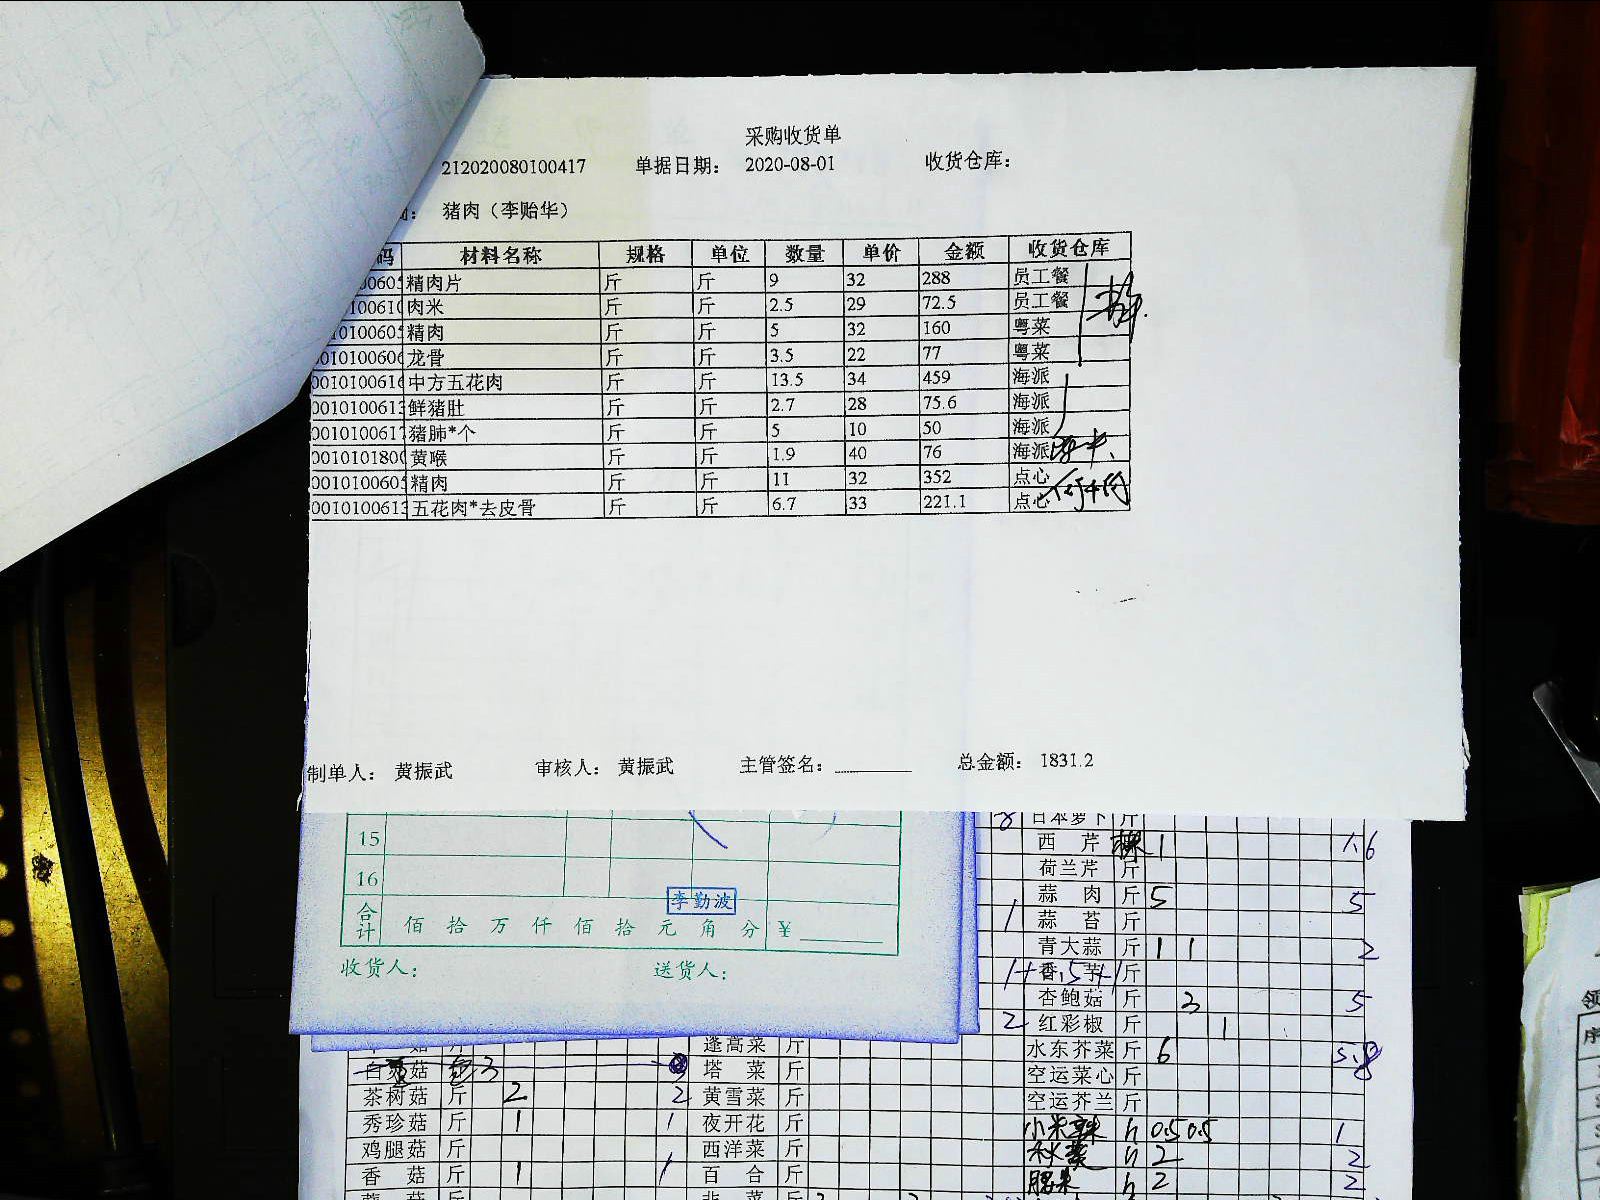 采购收货单
212020080100417 单据日期: 2020-08-01 收货仓库:
猪肉（李贻华）
码 材料名称 规格 单位 数量 单价 金额 收货仓库
精肉片 斤 斤 9 32 288 员工餐
肉米 斤 斤 2.5 29 72.5 员工餐
精肉 斤 斤 5 32 160 粤菜
龙骨 斤 斤 3.5 22 77 粤菜
中方五花肉 斤 斤 13.5 34 459 海派
鲜猪肚 斤 斤 2.7 28 75.6 海派
猪肺*个 斤 斤 5 10 50 海派
黄喉 斤 斤 1.9 40 76 海派
精肉 斤 斤 11 32 352 点心
五花肉*去皮骨 斤 斤 6.7 33 221.1 点心
制单人: 黄振武 审核人: 黄振武 主管签名: 总金额: 1831.2
15
16
李勤波
合计 佰 拾 万 仟 佰 拾 元 角 分 ¥
收货人: 送货人:
日本萝卜 斤
西芹 1
荷兰芹 斤
蒜肉 斤 5 5
1 蒜苔 斤
青大蒜 斤 1 1 2
斤
杏鲍菇 斤 3 5
2 红彩椒 斤 1
水东芥菜 斤 6
空运菜心 斤
空运芥兰 斤
小米辣 0.5 0.5 1
2 2
2 2
蓬高菜 斤
塔菜 斤
茶树菇 斤 2 2 黄雪菜 斤
秀珍菇 斤 1 1 夜开花 斤
鸡腿菇 斤 西洋菜 斤
香菇 斤 1 1 百合 斤